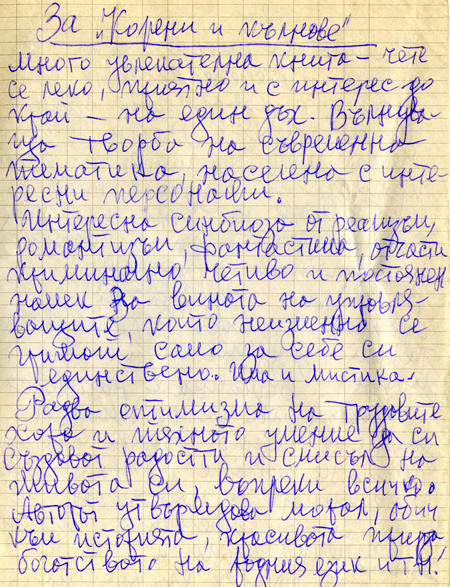 За „Корени и кълнове“
Много увлекателна книга – чете
се леко, приятно и с интерес до
край – на един дъх. Вълнува-
ща творба на съвременна
тематика, населена с инте-
ресни персонажи.
Интересна симбиоза от реализъм,
романтизъм, фантастика, отчасти
криминално четиво и постоянен
намек за вината на управля-
ващите, които неизменно се
грижат само за себе си
единствено. Има и мистика.
Радва оптимизма на трудовите
хора и тяхното умение да си
създават радости и смисъл на
живота си, въпреки всичко.
Авторът утвърждава морал, обич
към историята, красивата природа
богатството на родния език и т.н.!